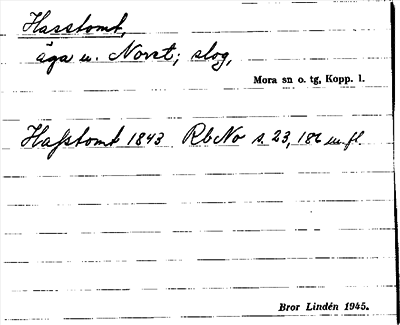 Hasstomt,
äga u. Noret; slog,
Mora sn o. tg, Kopp. l.
Haſstomt 1843 RbNo s. 23, 186 m. fl.
Bror Lindén 1945.